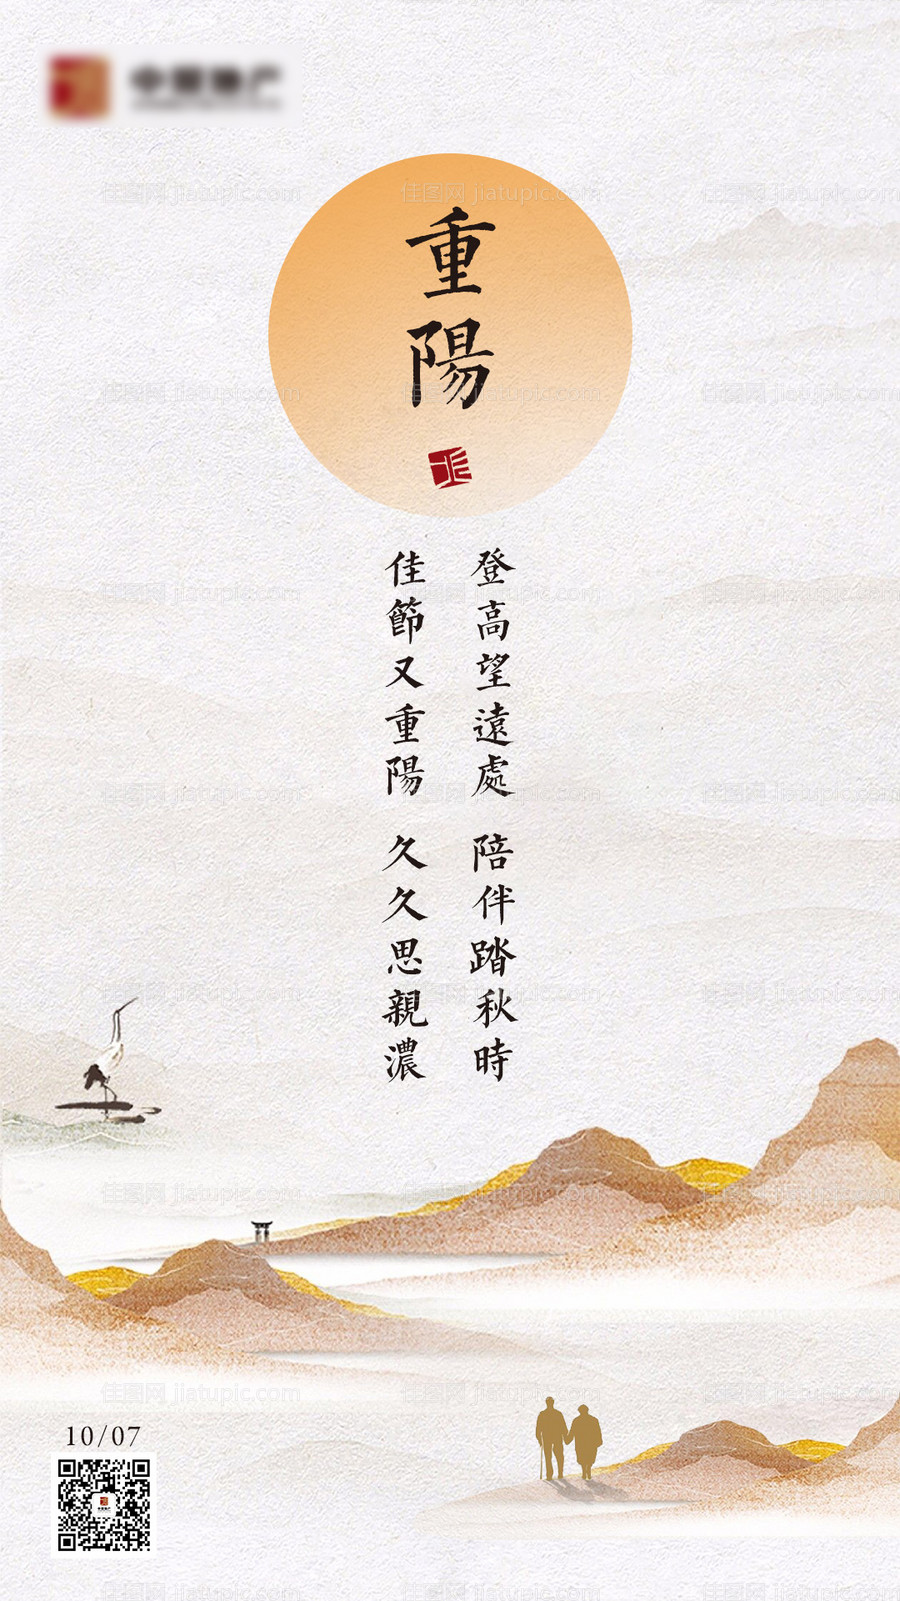 重陽
登高望遠處 陪伴踏秋時
佳節又重陽 久久思親濃
10/07
住图网 jiatupic.com